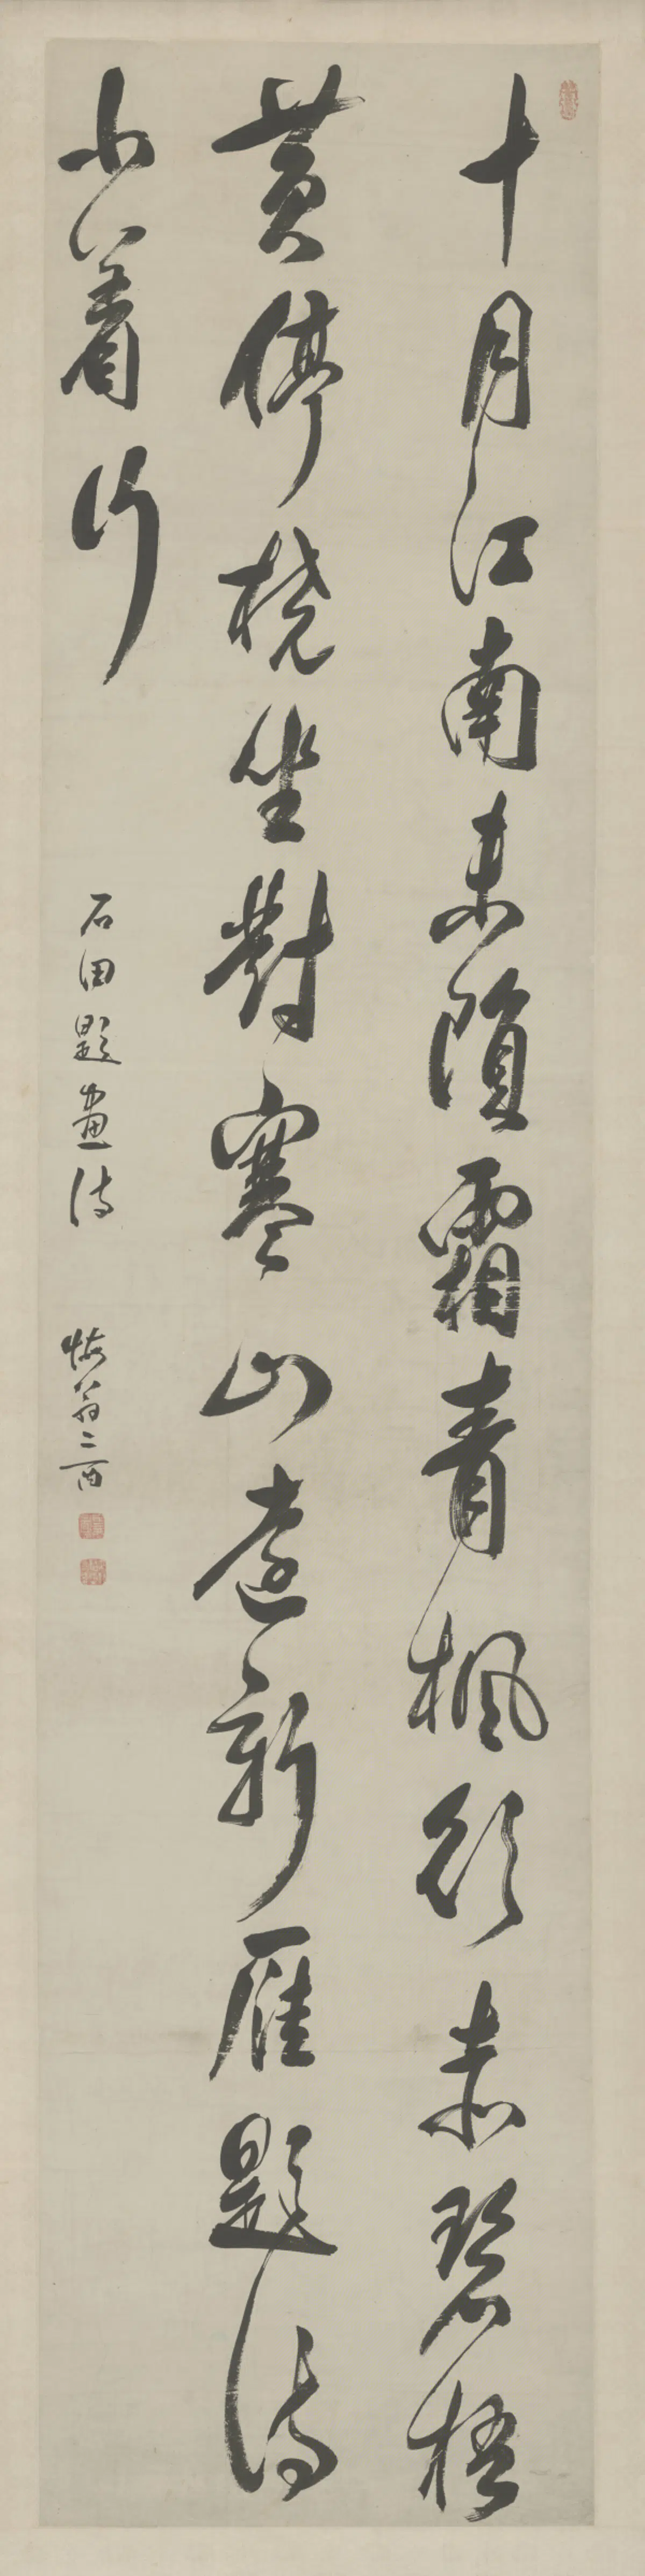 十月江南未隕霜青楓欲赤碧梧
黃停橈坐對寒山遠新雁題詩
小着行
石田題畫詩
翁